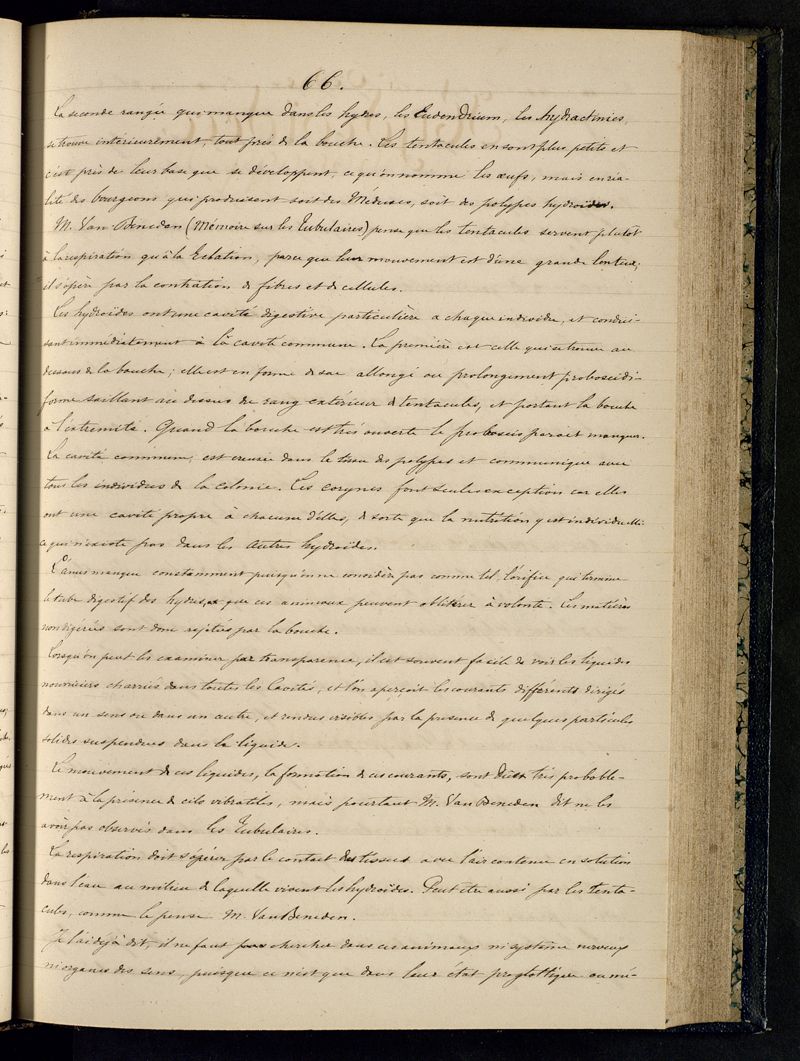 66.
La seconde rangée qui manque dans les hydres, les Eudendrium, les hydractinies,
se trouve intérieurement, tout près de la bouche. Les tentacules en sont plus petits et
c'est près de leur base que se développent, ce qu'on nomme les œufs, mais en réa-
lité des bourgeons qui produisent soit des Méduses, soit des polypes hydroïdes.
M. Van Beneden (Mémoire sur les Tubulaires) pense que les tentacules servent plutôt
à la respiration qu'à la , parce que leur mouvement est d'une grande lenteur;
il s'opère par la contration de fibres et de cellules.
Les hydroïdes ont une cavité digestive particulière a chaque individu, et condui-
sant immédiatement à là cavité commune. La première est celle qui se trouve au
dessous de la bouche; elle est en forme de sac allongé ou prolongement proboscidi-
forme saillant au dessus du rang extérieur de tentacules, et portant la bouche
à l'extremité. Quand la bouche est très ouverte le proboscis parait manquer.
La cavité commune, est creusée dans le tissu des polypes et communique avec
tous les individus de la colonie. Les corynes font seules exception car elles
ont une cavité propre à chacune d'elles, de sorte que la nutrition y est individuelle
ce qui n'existe pas dans les autres hydroïdes.
L'anus manque constamment puisqu'on ne considère pas comme tel, l'orifice qui termine
le tube digestif des hydres, et que ces animaux peuvent oblitérer à volonté. Les matières
non digérées sont donc rejetées par la bouche.
Lorsqu'on peut les examiner par transparence, il est souvent facile de voir les liquides
nourriciers charriés dans toutes les cavités, et l'on aperçoit les courants différents dirigés
dans un sens ou dans un autre, et rendus visibles par la presence de quelques particules
solides suspendues dans le liquide.
Le mouvement de ces liquides, la formation de ces courants, sont dus très probable-
ment à la présence de cils vibratiles, mais pourtant M. Van Beneden dit ne les
avoir pas observés dans les Tubulaires.
La respiration doit s'opérer par le contact des tissus avec l'air contenu en solution
dans l'eau au milieu de laquelle vivent les hydroïdes. Peut etre aussi par les tenta-
cules, comme le pense M. Van Beneden.
Je l'ai déjà dit, il ne faut pas chercher dans ces animaux ni système nerveux
ni organes des sens, puisque ce n'est que dans leur état proglottique ou mé-